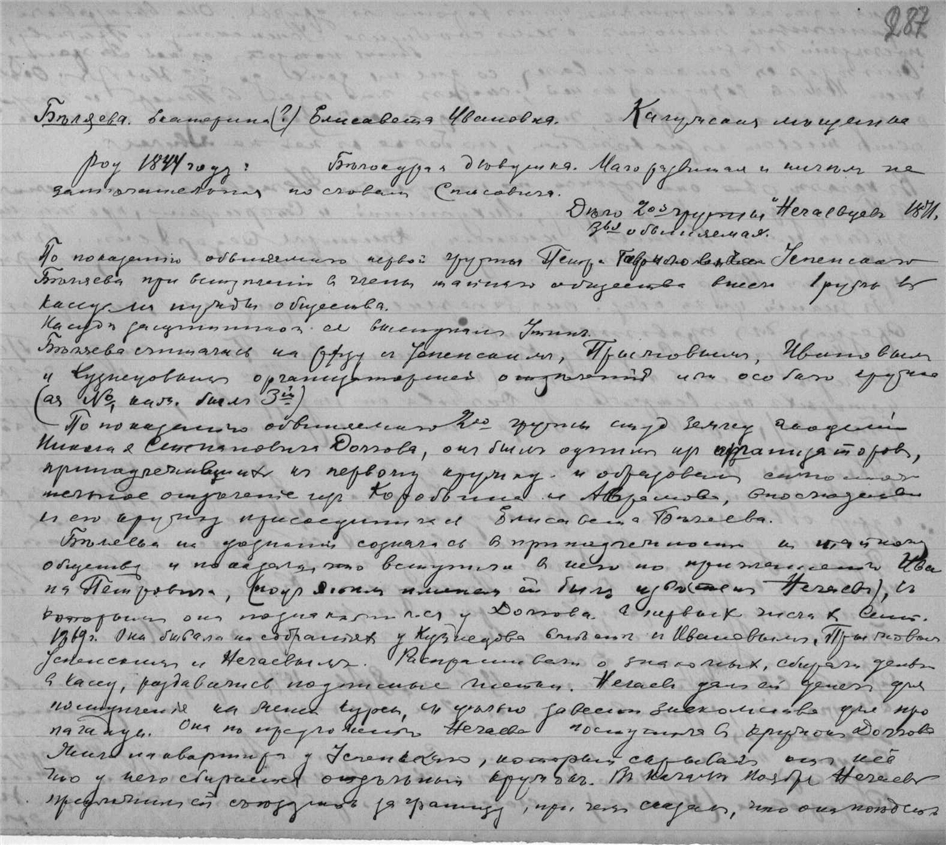 287
Бѣляева. Екатерина (?) Елисавета Ивановна. Калужская мѣщанка
род 1844 году? Бѣлокурая дѣвушка. Малоразвитая и ничѣм не
замѣчательная по словам Спасовича.
Дѣло 2ой группы "Нечаевцев 1871.
3ья обвиняемая.
По показанию обвиняемаго первой группы Петра Гавриловича Успенскаго
Бѣляева при вступлении в члены тайнаго общества внесла 1 рубль в
кассу на нужды общества.
Бѣляева считалась на с Успенским, Прыжовым, Ивановым
и Кузнецовым организаторшей отдѣления или особаго кружка
(ея № был 3й)
По показанию обвиняемаго 2ой группы студ. Землед. академии
Николая Степановича Долгова, он был одним из организаторов,
принадлежавших к первому кружку и образовал
отдѣление из Коробьина и Аврамова, впослѣдствии
к его кружку присоединилась Елисавета Бѣляева.
Бѣляева на дознании созналась в принадлежности к тайному
обществу и показала, что вступила в него по приглашению Ива
на Петровича, (под этим именем ей был извѣстен Нечаев), с
которым она познакомилась у Долгова в первых числах Сент.
1869г. Она бывала на собраниях у Кузнецова вмѣстѣ с Ивановым, Прыжовым
Успенским и Нечаевым. Распрашивали о знакомых, собирали деньги
в кассу, раздавались подписные листки. Нечаев дал ей денег для
поступления на курсы, с цѣлью завести знакомство для про
паганды. Она по предложению Нечаева поступила в кружок Долгова
Жила на квартире у Успенскаго, который скрывал от нее
что у него собирался отдѣльный кружок. В началѣ ноября Нечаев
предложил ей съѣздить за границу, при чем сказал, что она